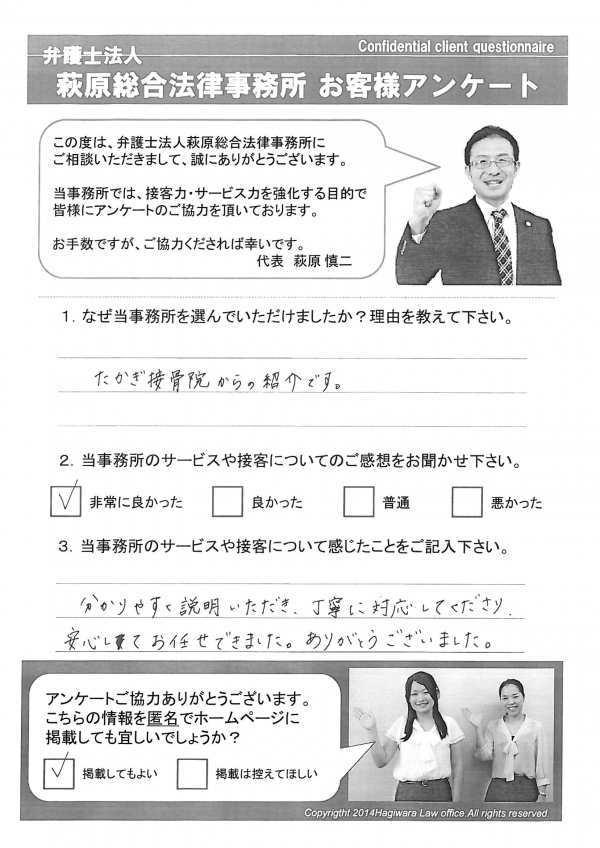 Confidential client questionnaire
弁護士法人
萩原総合法律事務所 お客様アンケート
この度は、弁護士法人萩原総合法律事務所に
ご相談いただきまして、誠にありがとうございます。
当事務所では、接客力・サービス力を強化する目的で
皆様にアンケートのご協力を頂いております。
お手数ですが、ご協力くだされば幸いです。
代表 萩原 慎二
1. なぜ当事務所を選んでいただけましたか?理由を教えて下さい。
たかぎ接骨院からの紹介です。
2. 当事務所のサービスや接客についてのご感想をお聞かせ下さい。
非常に良かった 良かった 普通 悪かった
3. 当事務所のサービスや接客について感じたことをご記入下さい。
分かりやすく説明いただき、丁寧に対応してくださり、
安心してお任せできました。ありがとうございました。
アンケートご協力ありがとうございます。
こちらの情報を匿名でホームページに
掲載しても宜しいでしょうか?
掲載してもよい 掲載は控えてほしい
Copyrightht 2014Hagiwara Law office.All rights reserved.